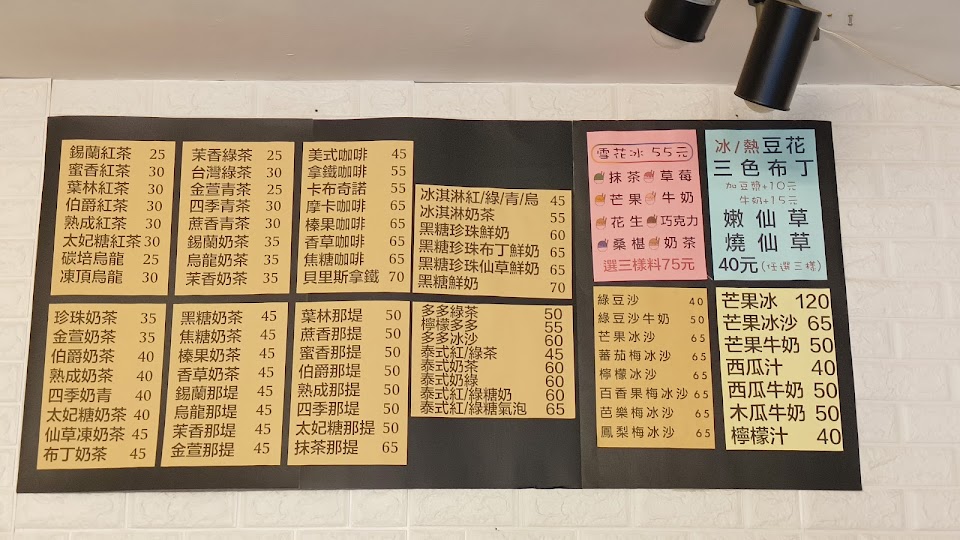 錫蘭紅茶 25
蜜香紅茶 30
葉林紅茶 30
伯爵紅茶 30
熟成紅茶 30
太妃糖紅茶 30
碳培烏龍 25
凍頂烏龍 30
茉香綠茶 25
台灣綠茶 30
金萱青茶 25
四季青茶 30
蔗香青茶 30
錫蘭奶茶 35
烏龍奶茶 35
茉香奶茶 35
美式咖啡 45
拿鐵咖啡 55
卡布奇諾 55
摩卡咖啡 65
榛果咖啡 65
香草咖啡 65
焦糖咖啡 65
貝里斯拿鐵 70
冰淇淋紅/綠/青/烏 45
冰淇淋奶茶 55
黑糖珍珠鮮奶 60
黑糖珍珠布丁鮮奶 65
黑糖珍珠仙草鮮奶 65
黑糖鮮奶 70
珍珠奶茶 35
金萱奶茶 35
伯爵奶茶 40
熟成奶茶 40
四季奶青 40
太妃糖奶茶 40
仙草凍奶茶 45
布丁奶茶 45
黑糖奶茶 45
焦糖奶茶 45
榛果奶茶 45
香草奶茶 45
錫蘭那堤 45
烏龍那堤 45
茉香那堤 45
金萱那堤 45
葉林那堤 50
蔗香那堤 50
蜜香那堤 50
伯爵那堤 50
熟成那堤 50
四季那堤 50
太妃糖那堤 50
抹茶那堤 65
多多綠茶 50
檸檬多多 55
多多冰沙 60
泰式紅/綠茶 45
泰式奶茶 60
泰式奶綠 60
泰式紅/綠糖奶 60
泰式紅/綠糖氣泡 65
雪花冰 55元
抹茶 草莓
芒果 牛奶
花生 巧克力
桑椹 奶茶
選三樣料75元
冰/熱豆花
三色布丁
加豆漿+10元
牛奶+15元
嫩仙草
燒仙草
40元(任選三樣)
綠豆沙 40
綠豆沙牛奶 50
芒果冰沙 65
蕃茄梅冰沙 65
檸檬冰沙 65
百香果梅冰沙 65
芭樂梅冰沙 65
鳳梨梅冰沙 65
芒果冰 120
芒果冰沙 65
芒果牛奶 50
西瓜汁 40
西瓜牛奶 50
木瓜牛奶 50
檸檬汁 40